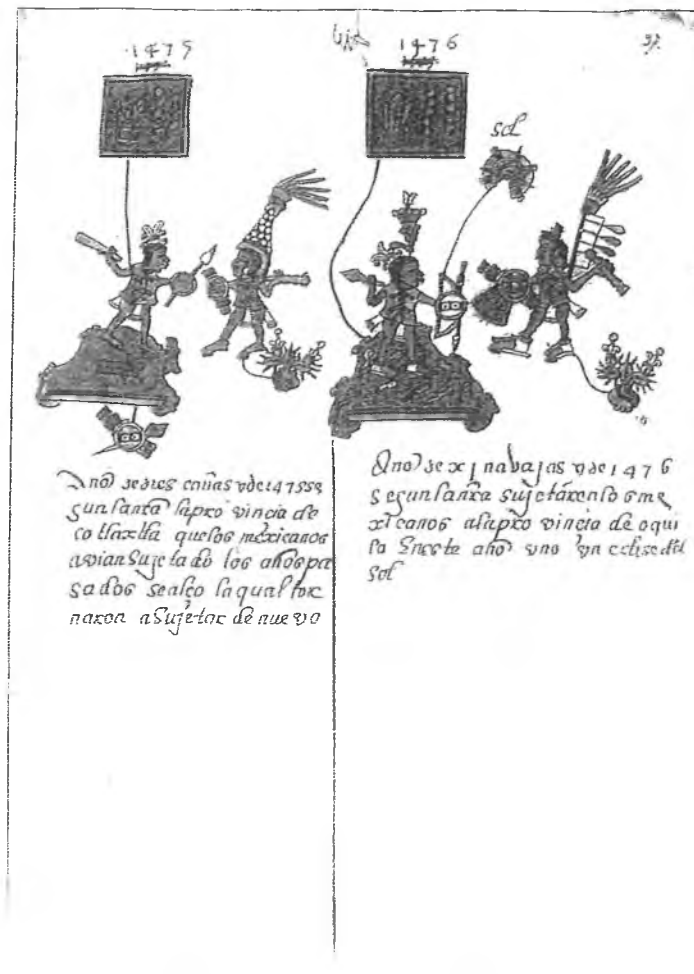 1475
1476
37
sol
Año de dies cañas y de 1475 se
gun la nra la pro vincia de
cotlaxtla que los mexicanos
avian Sujetado los años pa
sados se alço la qual tor
naron a Sujetar de nuevo
Año de xj nabajas y de 1476
segun la nra sujetaron los me
xicanos a la pro vincia de oqui
la En este año uvo un eclise del
sol